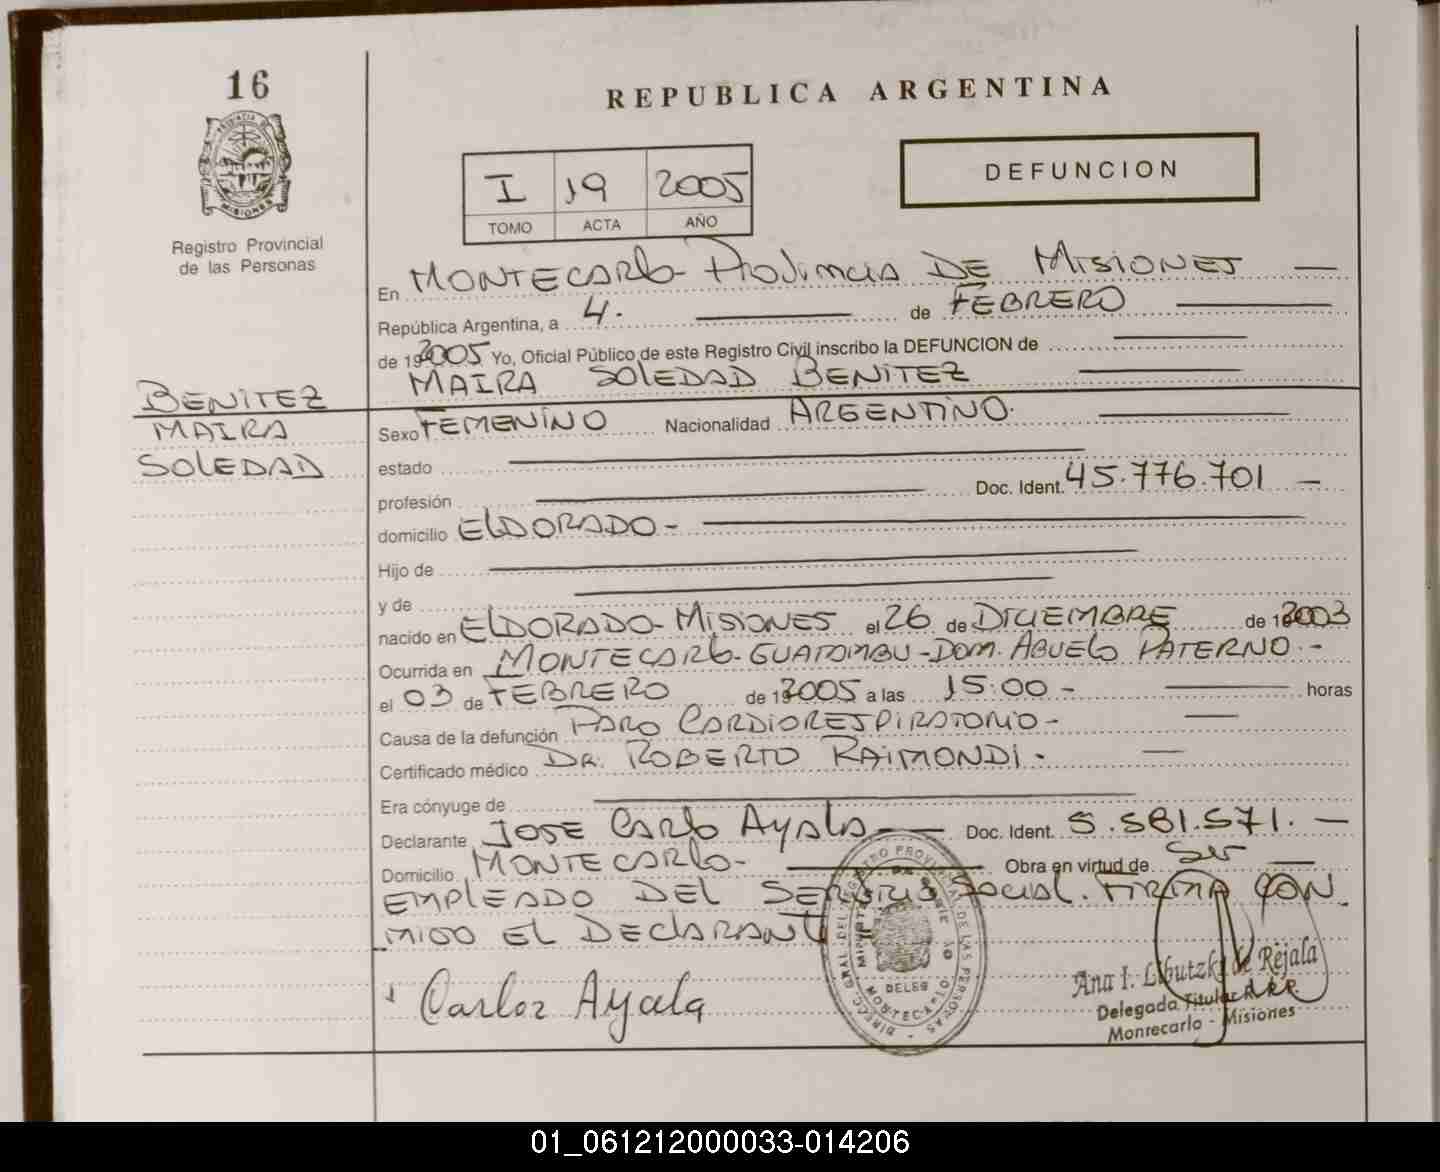 16
PROVINCIA DE MISIONES
Registro Provincial
de las Personas
REPUBLICA ARGENTINA
DEFUNCION
I 19 2005
TOMO ACTA AÑO
En MONTECARLO - PROVINCIA DE MISIONES
República Argentina, a 4. de FEBRERO
de 192005 Yo, Oficial Público de este Registro Civil inscribo la DEFUNCION de
MAIRA SOLEDAD BENITEZ
BENITEZ
MAIRA
SOLEDAD
Sexo FEMENINO Nacionalidad ARGENTINO.
estado
profesión Doc. Ident. 45.776.701 -
domicilio ELDORADO -
Hijo de
y de
nacido en ELDORADO - MISIONES el 26 de DICIEMBRE de 192003
Ocurrida en MONTECARLO - GUATAMBU - DOM. ABUELO PATERNO. -
el 03 de FEBRERO de 192005 a las 15:00 - horas
Causa de la defunción PARO CARDIORESPIRATORIO -
Certificado médico DR. ROBERTO RAIMONDI. -
Era cónyuge de
Declarante JOSE CARLO AYALA Doc. Ident. 5.581.571. -
Domicilio MONTECARLO - Obra en virtud de SER
EMPLEADO DEL SERVICIO SOCIAL. FIRMA CON
MIGO EL DECLARANTE
Carlos Ayala
Ana I. Libutzki de Rejala
Delegada Titular R.P.P.
Montecarlo - Misiones
01_061212000033-014206